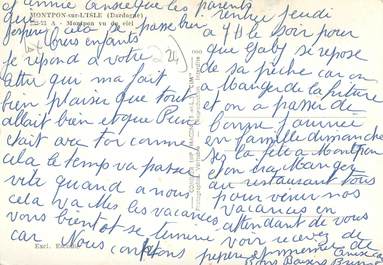 et amie ainsi que les parents
MONTPON-sur-L'ISLE (Dordogne)
Montpon vu du ciel
j'espère cela se passe bien
chers enfants
24
je répond à votre
lettre qui ma fait
bien plaisir que tout
allait bien et que
était avec toi comme
cela le temps va passer
vite quand a nous
cela va Mes les vacances
vont bientot se terminer
car Nous comptons
rentrer jeudi
le soir pour
que Gaby se repose
de sa pêche car on
a Manger de la friture
et on a passer de
bonne journée
en famille dimanche
la fête a Montpon
et on ira Manger
au restaurant tous
pour finir nos
vacances en
attendant de vous
voir recevez de
Bons Baisers